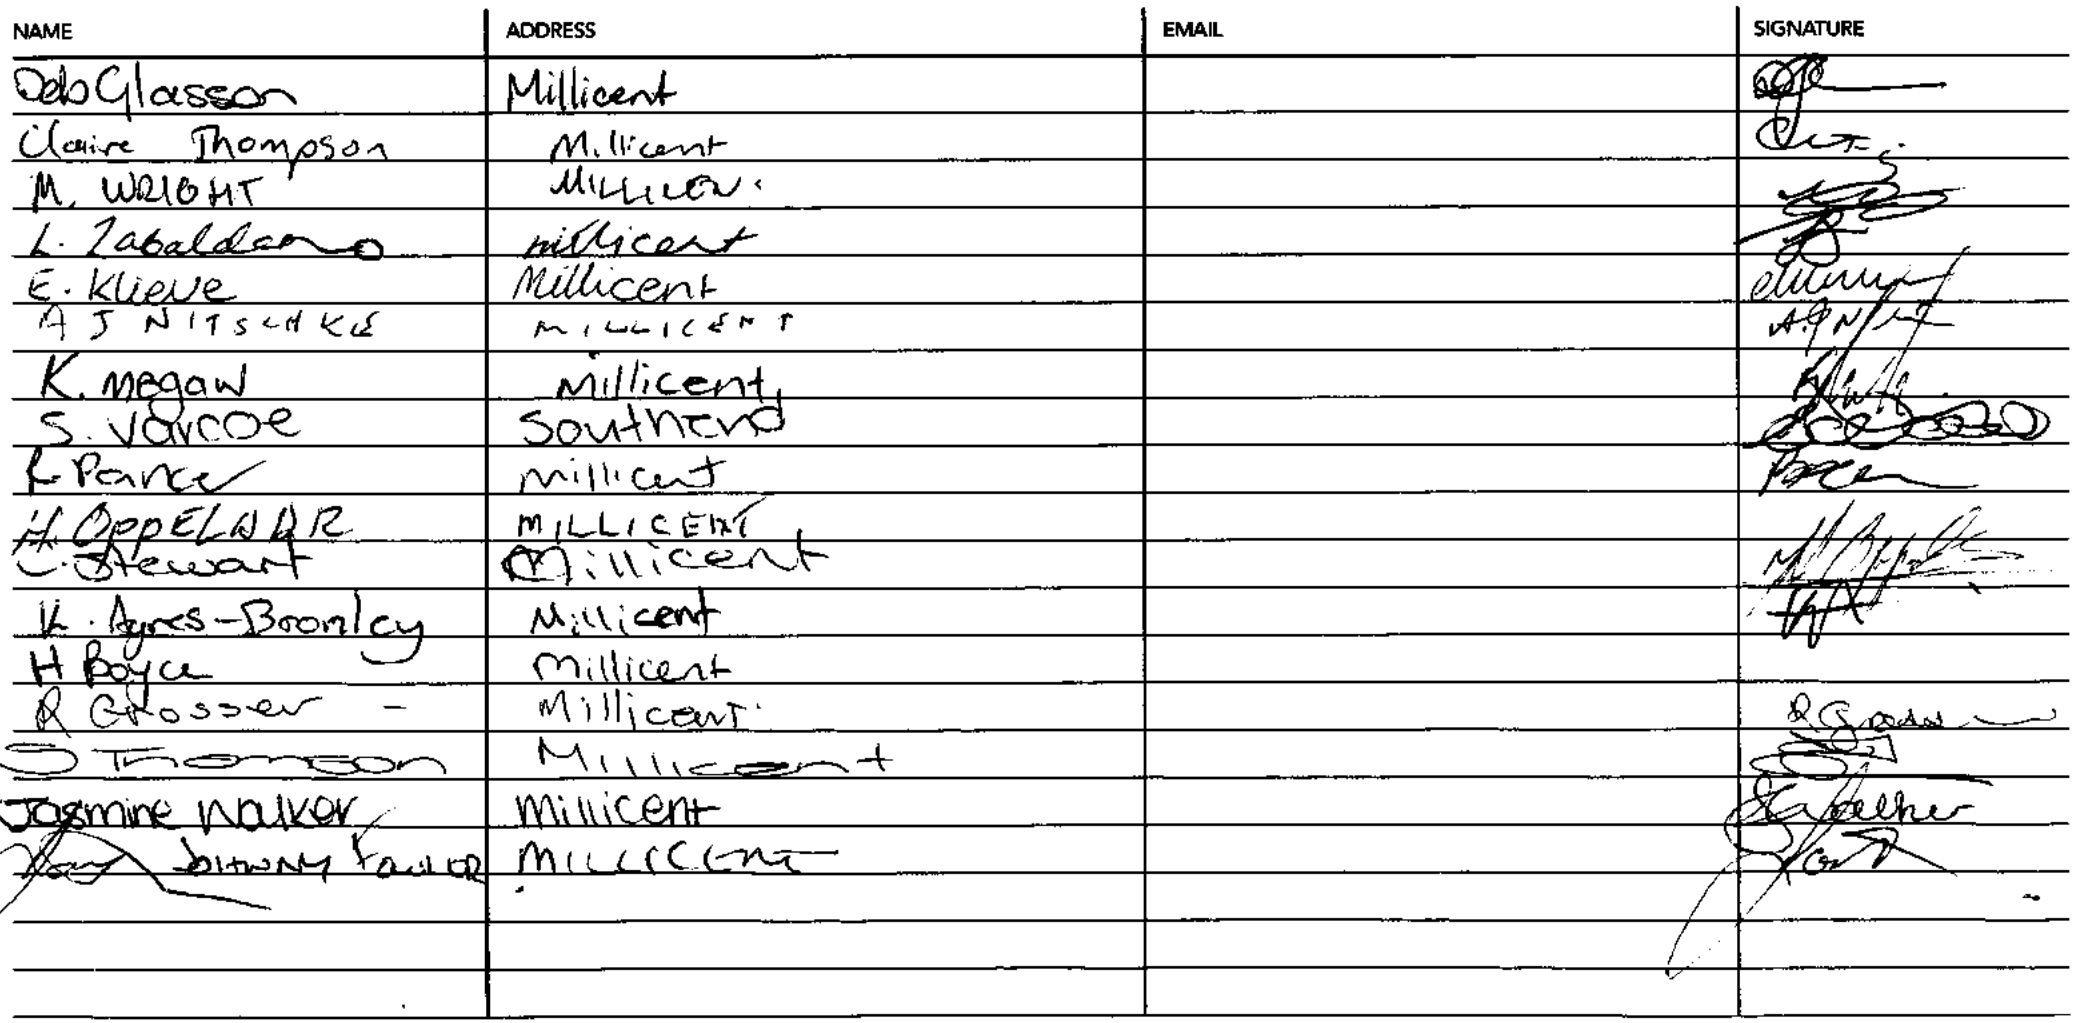 NAME ADDRESS EMAIL SIGNATURE
Deb Glasson Millicent
Claire Thompson Millicent
M. WRIGHT MILLICEN.
L. Zabaldano millicent
E. Klieve Millicent
A J NITSCHKE MILLICENT A.J N
K. Megaw Millicent,
S. Varcoe Southend
Millicent
H. OPPELAAR MILLICENT
C. Stewart Millicent
K. Ayres-Bromley Millicent
H Boyce Millicent
R Grosser - Millicent R Grosser
S Thomson Millicent
Jasmine Walker Millicent JWalker
JOHNNY MILLICENT